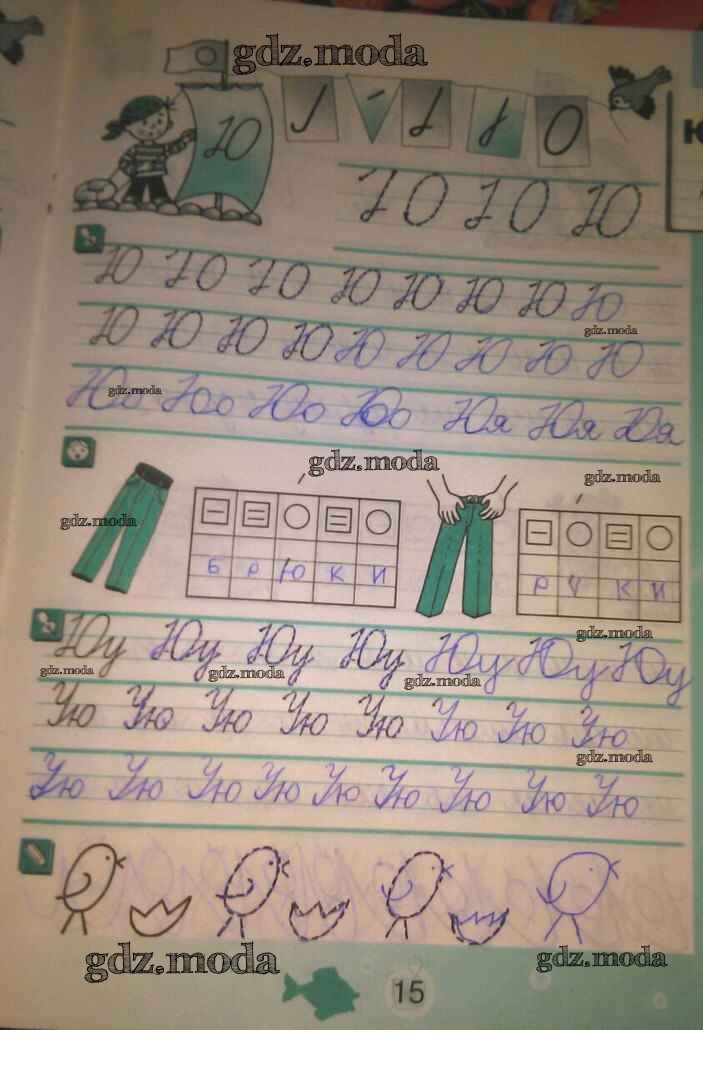 gdz.moda
Ю О
Ю Ю Ю
Ю Ю Ю Ю Ю Ю Ю Ю
gdz.moda
Ю Ю Ю Ю Ю Ю Ю Ю Ю
gdz.moda
Юо Юо Юо Юо Юя Юя Юя
gdz.moda
gdz.moda
gdz.moda
Б Р Ю К И Р У К И
gdz.moda
Юу Юу Юу Юу Юу Юу Юу
gdz.moda gdz.moda gdz.moda
Ую Ую Ую Ую Ую Ую Ую Ую
gdz.moda
Ую Ую Ую Ую Ую Ую Ую Ую Ую
gdz.moda gdz.moda
15